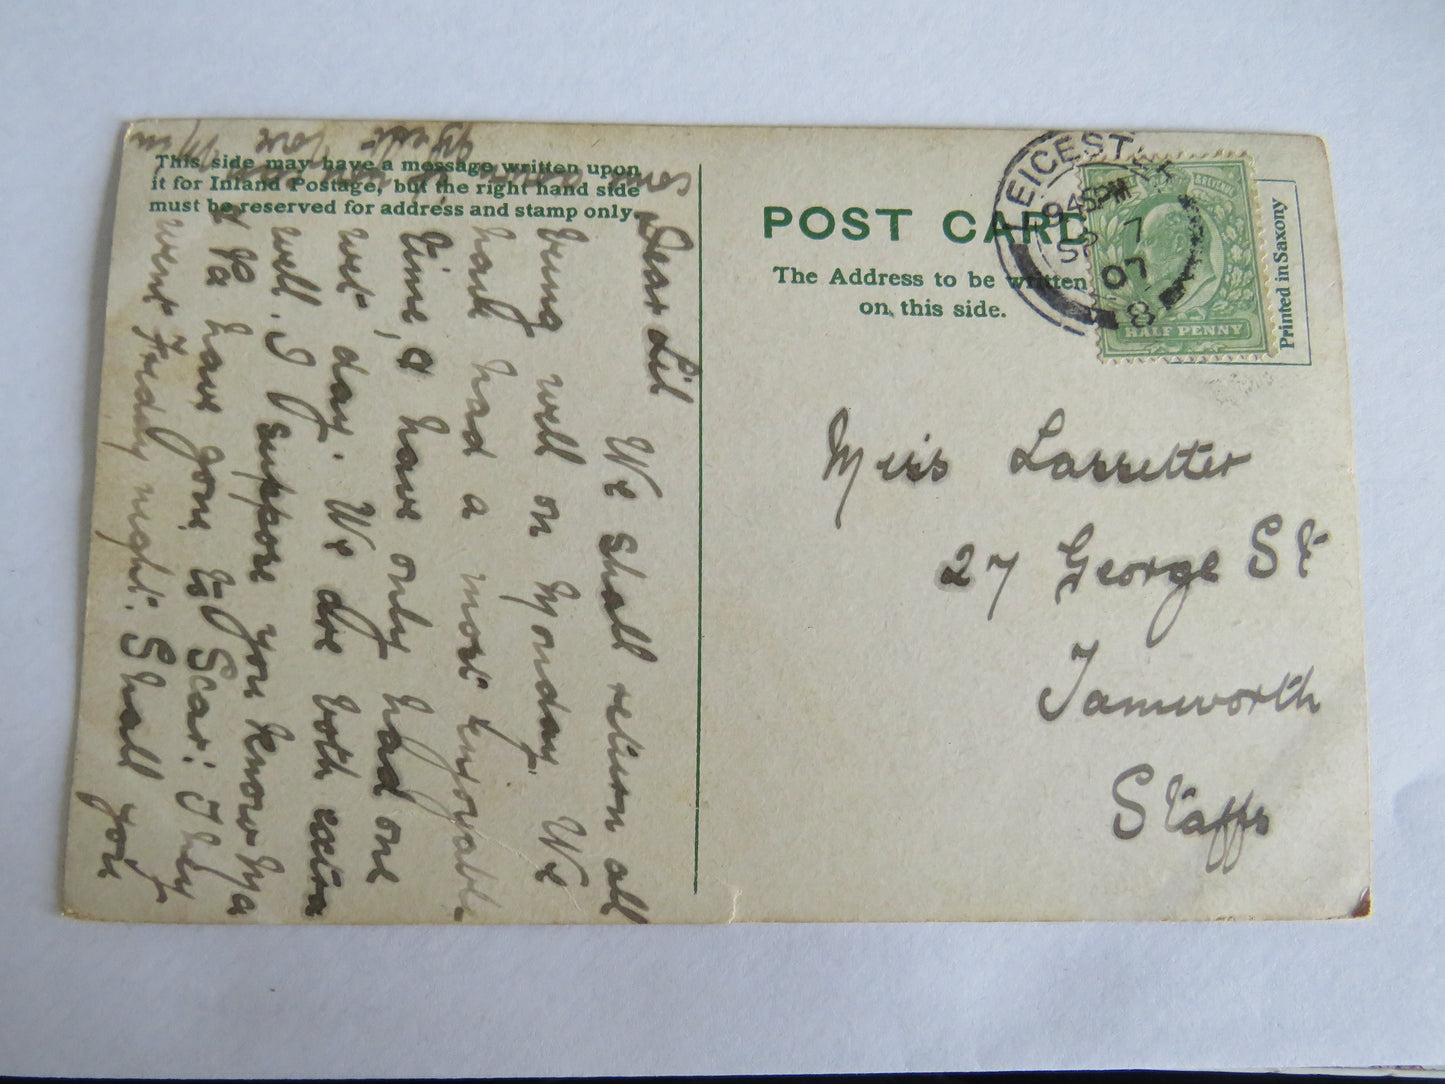 This side may have a message written upon
it for Inland Postage, but the right hand side
must be reserved for address and stamp only.
POST CARD
The Address to be written
on this side.
LEICESTER
9.45PM
SP 7
07
8
HALF PENNY
Printed in Saxony
Miss Lassetter
27 George St
Tamworth
Staffs
Dear Lil
We shall return all
being well on Monday. We
have had a most enjoyable
time, & have only had one
wet day. We are both extra
well. I suppose you know Ma
& Pa have gone to Scar: They
went Friday night. Shall you
come
love